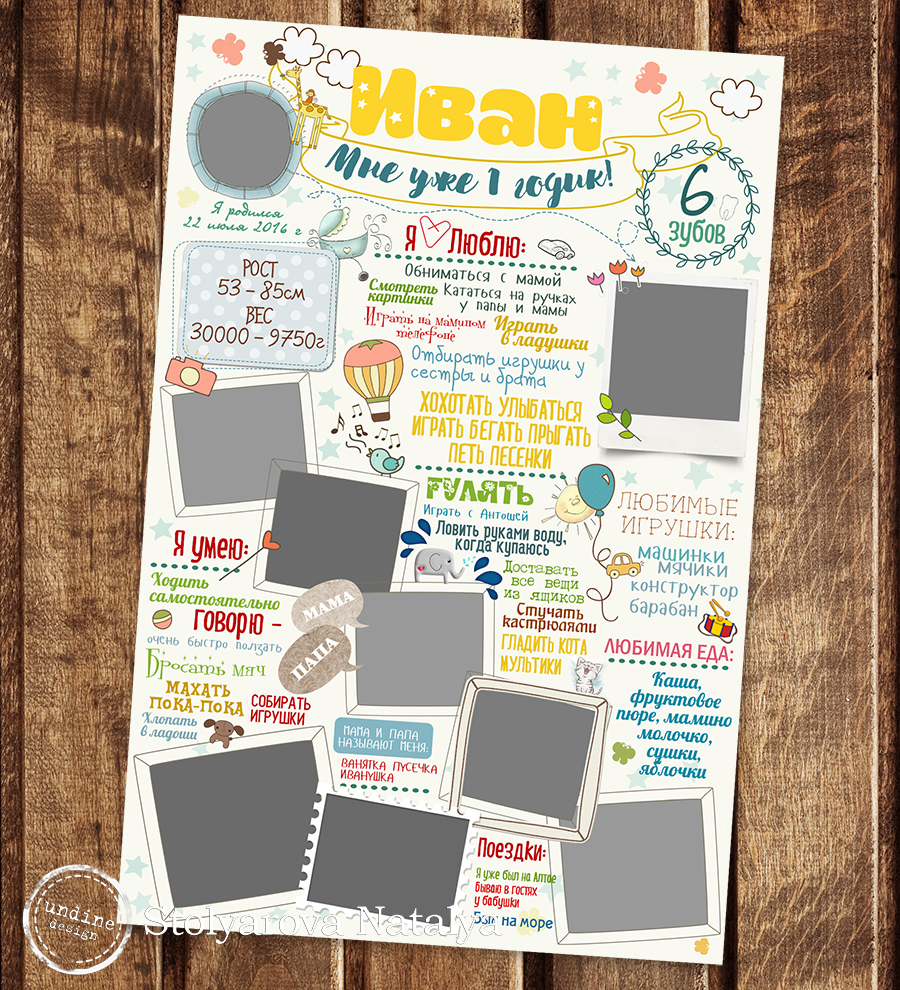 Иван
Мне уже 1 годик!
6
зубов
Я родился
22 июля 2016 г
РОСТ
53 – 85см
ВЕС
30000 – 9750г
Я Люблю:
Обниматься с мамой
Смотреть
картинки
Кататься на ручках
у папы и мамы
Играть на мамином
телефоне
Играть
в ладушки
Отбирать игрушки у
сестры и брата
ХОХОТАТЬ УЛЫБАТЬСЯ
ИГРАТЬ БЕГАТЬ ПРЫГАТЬ
ПЕТЬ ПЕСЕНКИ
ГУЛЯТЬ
Играть с Антошей
Ловить руками воду,
когда купаюсь
Доставать
все вещи
из ящиков
Стучать
кастрюлями
ГЛАДИТЬ КОТА
МУЛЬТИКИ
ЛЮБИМЫЕ
ИГРУШКИ:
машинки
мячики
конструктор
барабан
ЛЮБИМАЯ ЕДА:
Каша,
фруктовое
пюре, мамино
молочко,
сушки,
яблочки
Я умею:
Ходить
самостоятельно
говорю –
МАМА
ПАПА
очень быстро ползать
Бросать мяч
МАХАТЬ
ПОКА-ПОКА
СОБИРАТЬ
ИГРУШКИ
Хлопать
в ладоши
МАМА И ПАПА
НАЗЫВАЮТ МЕНЯ:
ВАНЯТКА ПУСЕЧКА
ИВАНУШКА
Поездки:
Я уже был на Алтае
бываю в гостях
у бабушки
Был на море
undine
design
Stolyarova Natalya